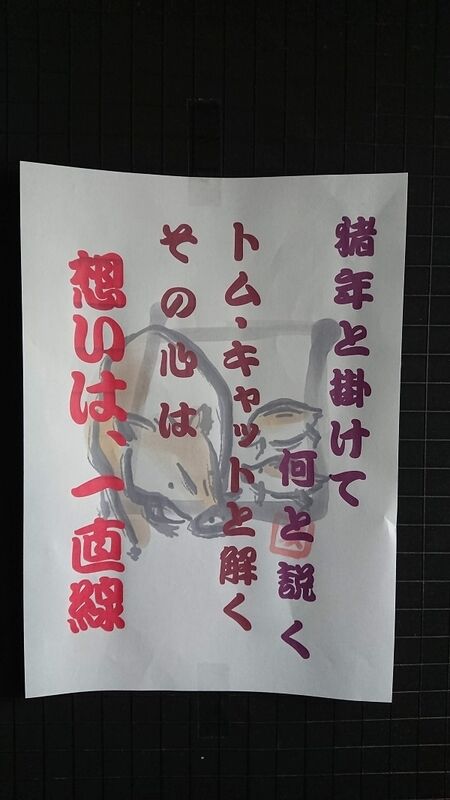 猪年と掛けて
何と説く
トム・キャットと解く
その心は
想いは、一直線